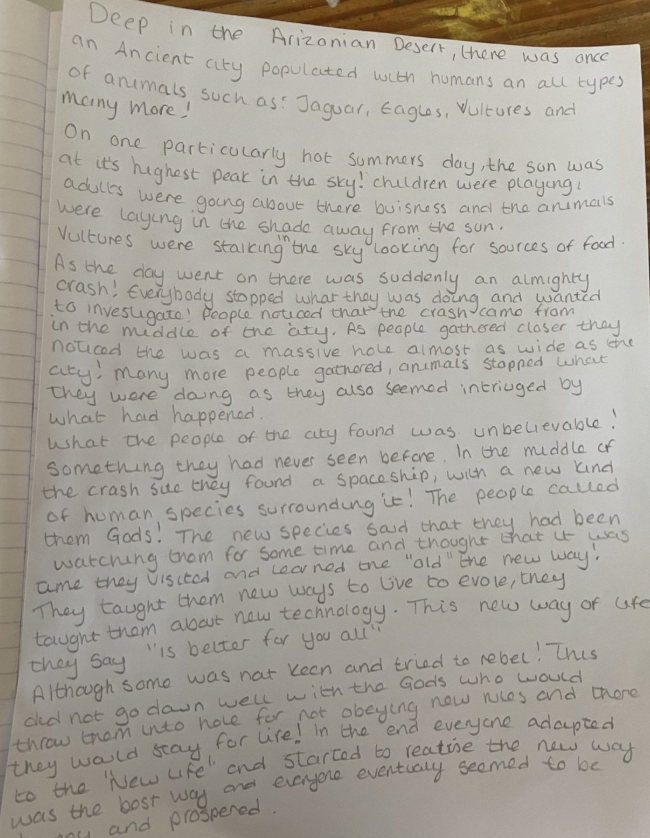 Deep in the Arizonian Desert, there was once
an Ancient city populated with humans an all types
of animals such as: Jaguar, Eagles, Vultures and
many more!
On one particularly hot summers day, the sun was
at it's highest peak in the sky! children were playing,
adults were going about there buisness and the animals
were laying in the shade away from the sun.
Vultures were stalking in the sky looking for sources of food.
As the day went on there was suddenly an almighty
crash! Everybody stopped what they was doing and wanted
to investigate! People noticed that the crash came from
in the middle of the city. As people gathered closer they
noticed the was a massive hole almost as wide as the
city! Many more people gathered, animals stopped what
they were doing as they also seemed intriuged by
what had happened.
What the people of the city found was unbelievable!
Something they had never seen before. In the middle of
the crash site they found a spaceship, with a new kind
of human species surrounding it! The people called
them Gods! The new species said that they had been
watching them for some time and thought that it was
time they visited and learned the "old" the new way!
They taught them new ways to live to evole, they
taught them about new technology. This new way of life
they say "is better for you all"
Although some was not keen and tried to rebel! This
did not go down well with the Gods who would
throw them into hole for not obeying new rules and there
they would stay for life! In the end everyone adapted
to the "New Life" and started to realise the new way
was the best way and everyone eventually seemed to be
and prospered.